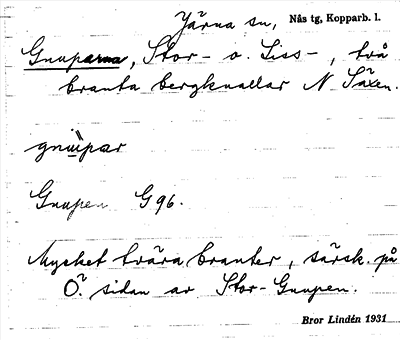 Järna sn, Nås tg, Kopparb. l.
Gnuparna, Stor- o. Liss-, två
branta bergknallar N Säxen.
gnupar
Gnupen G96.
Mycket tvära branter, särsk. på
Ö. sidan av Stor-Gnupen.
Bror Lindén 1931